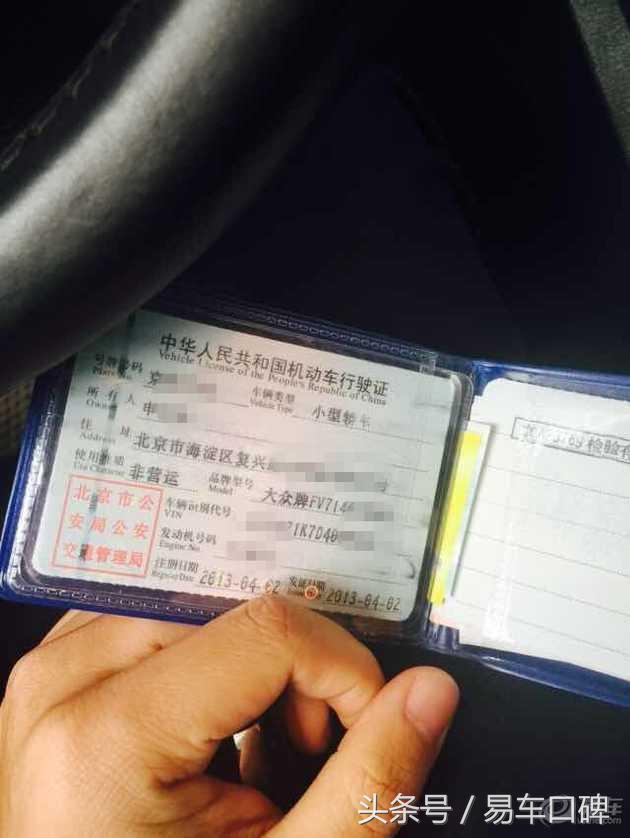 中华人民共和国机动车行驶证
Vehicle License of the People's Republic of China
号牌号码 京 车辆类型 小型轿车
Plate No. Vehicle Type
所有人 申
Owner
住址 北京市海淀区复兴
Address
使用性质 非营运 品牌型号 大众牌FV714
Use Character Model
北京市公
安局公安
交通管理局
车辆识别代号 71K7D40
VIN
发动机号码
Engine No.
注册日期 2013-04-02 发证日期 2013-04-02
Register Date
检验
头条号 / 易车口碑